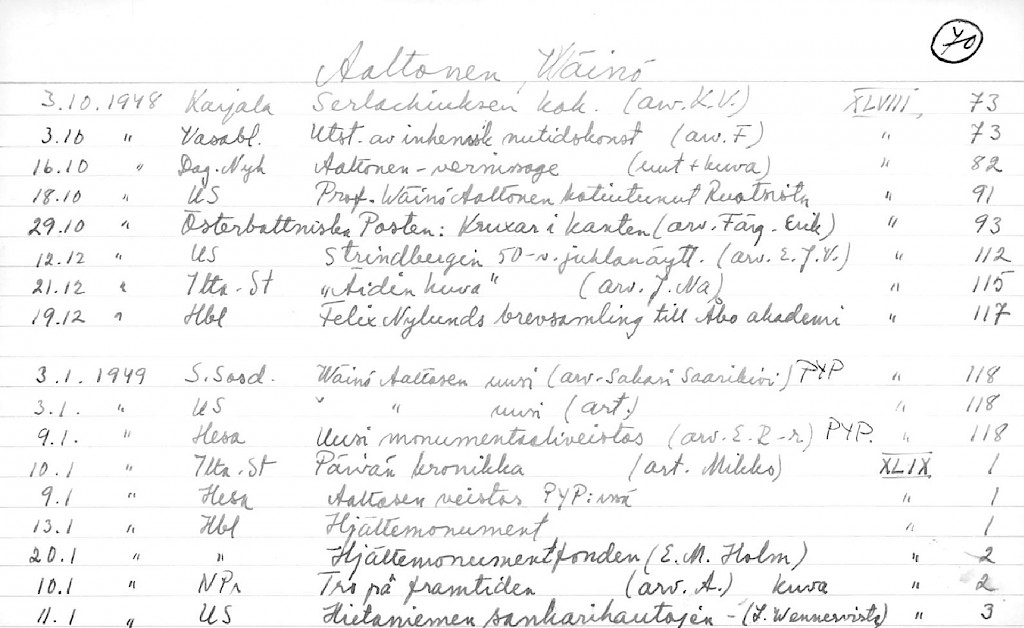 70
Aaltonen, Wäinö
3.10.1948 Karjala Serlachiuksen kok. (arv. K.V.) XLVIII, 73
3.10 " Vasabl. Utst. av inhemsk nutidskonst (arv. F) " 73
16.10 " Dag. Nyh Aaltonen-vernissage (uut + kuva) " 82
18.10 " US Prof. Wäinö Aaltonen kotiutunut Ruotsista " 91
29.10 " Österbottniska Posten: Kruxar i kanten (arv. Färg-Erik) " 93
12.12 " US Strindbergin 50-v. juhlanäytt. (arv. E.J.V.) " 112
21.12 " Ilta-St „Äidin kuva" (arv. J. Na) " 115
19.12 " Hbl Felix Nylunds brevsamling till Åbo akademi " 117
3.1.1949 S. Sosd. Wäinö Aaltosen uusi (arv. Sakari Saarikivi) PYP " 118
3.1. " US " " uusi (art.) " 118
9.1. " Hesa Uusi monumentaaliveistos (arv. E. R-r) PYP. " 118
10.1 " Ilta-St Päivän kronikka (art. Mikko) XLIX 1
9.1 " Hesa Aaltosen veistos PYP:ssä " 1
13.1 " Hbl Hjältemonument " 1
20.1 " " Hjältemonumentfonden (E.M. Holm) " 2
10.1 " NPr Tro på framtiden (arv. A.) kuva " 2
11.1 " US Hietaniemen sankarihautojen - (L. Wennervirta) " 3